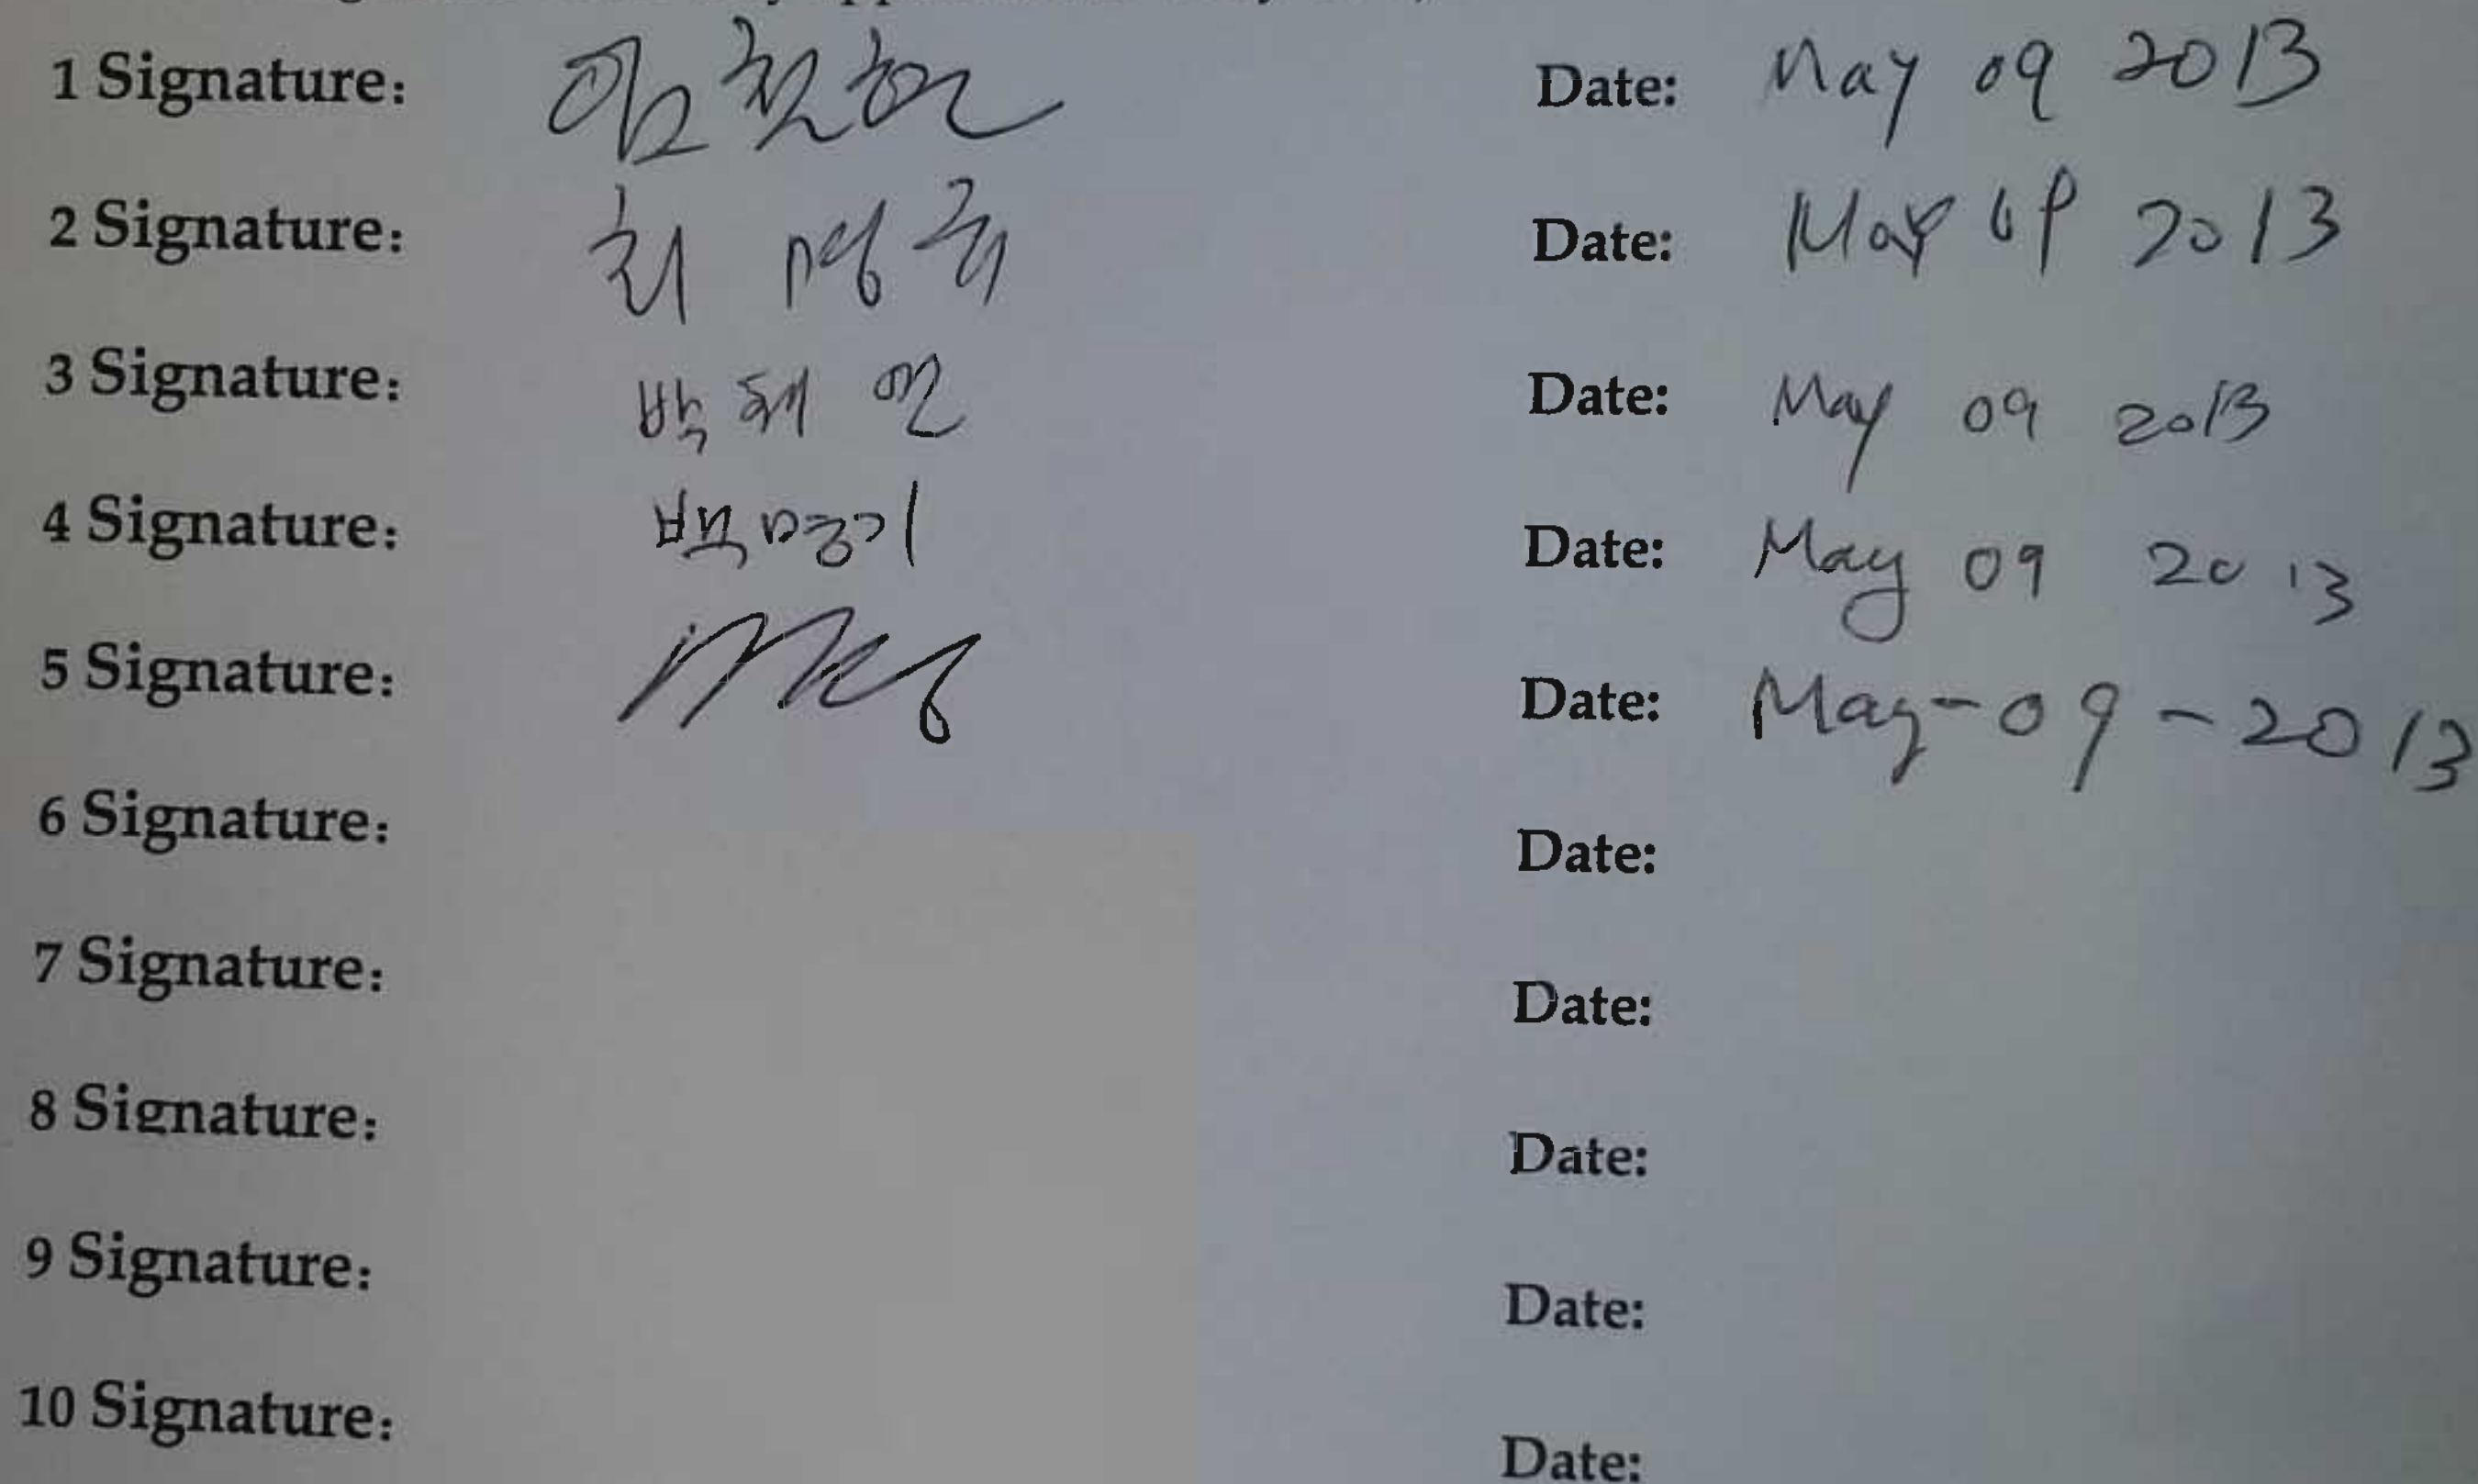 1 Signature: 임철현 Date: May 09 2013
2 Signature: 최명귀 Date: May 09 2013
3 Signature: 백혜연 Date: May 09 2013
4 Signature: 백명기 Date: May 09 2013
5 Signature: Date: May-09-2013
6 Signature: Date:
7 Signature: Date:
8 Signature: Date:
9 Signature: Date:
10 Signature: Date: